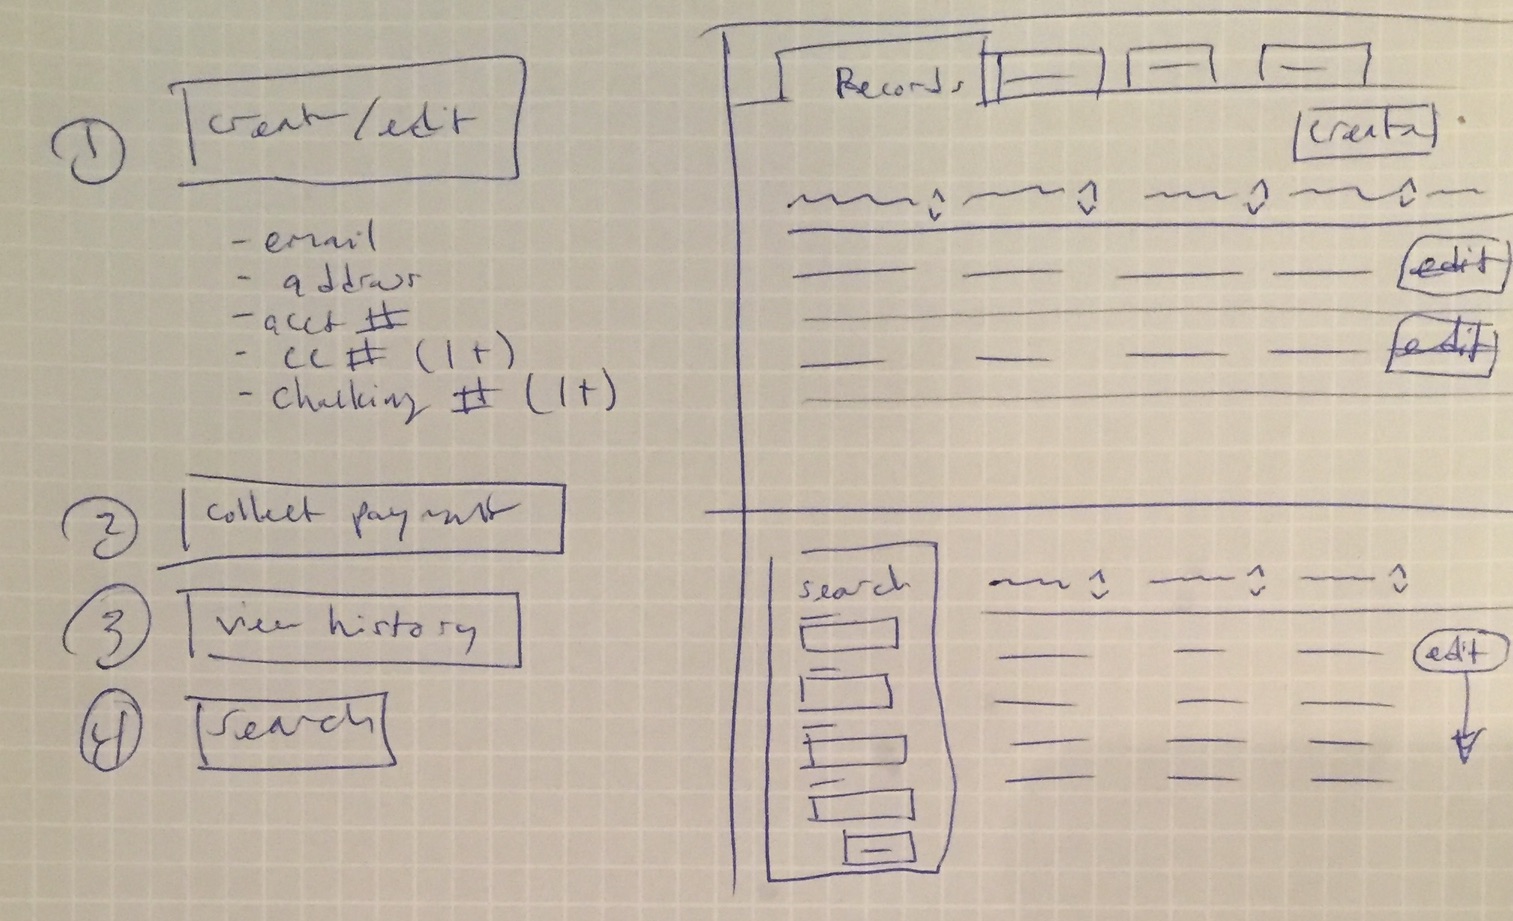 1 create/edit
- email
- address
- acct #
- cc # (1+)
- checking # (1+)
2 collect payment
3 view history
4 search
Records
create
edit
edit
search
edit